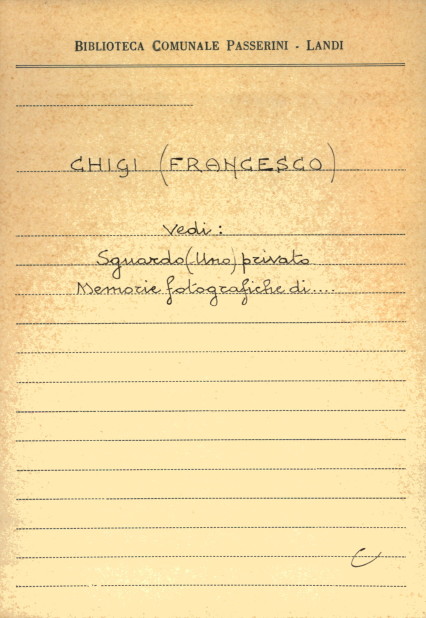 BIBLIOTECA COMUNALE PASSERINI - LANDI
CHIGI (FRANCESCO)
Vedi:
Sguardo (Uno) privato
Memorie fotografiche di....
C